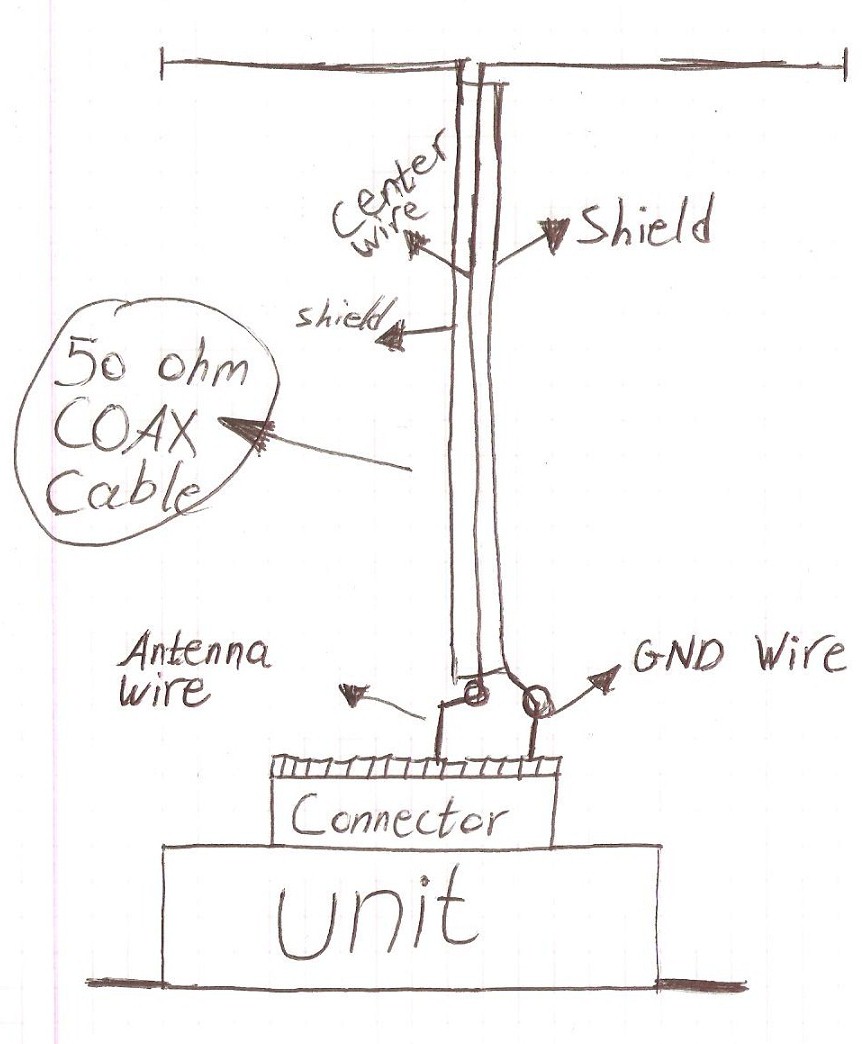 Center
wire
Shield
shield
50 ohm
COAX
Cable
Antenna
wire
GND Wire
Connector
Unit